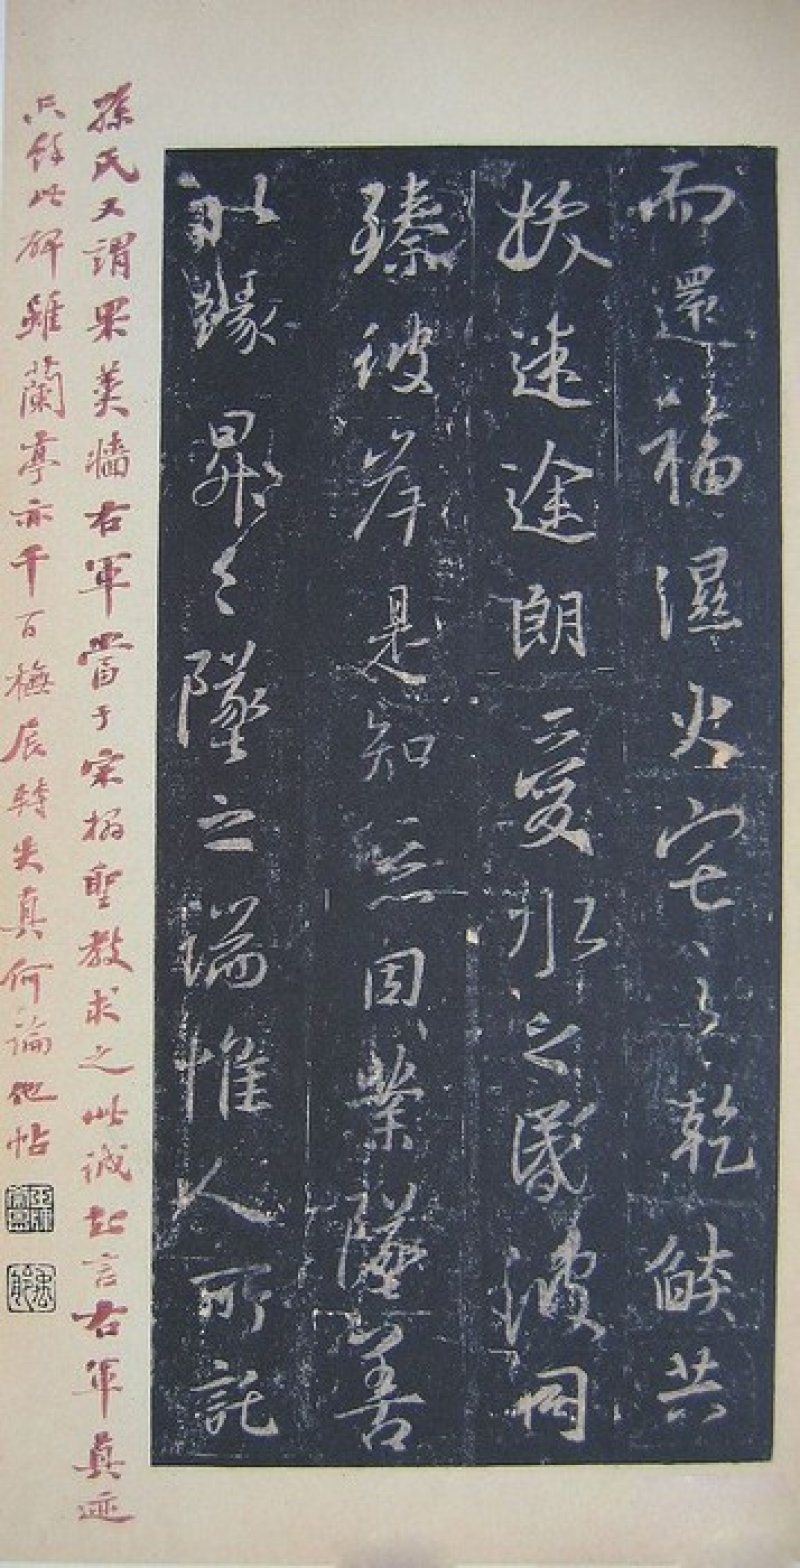 而還福濕火宅之乾燄共
拔迷途朗愛水之昬波同
臻彼岸是知惡因業墜善
以緣昇々墜之端惟人所託
孫氏又謂果羹墻右軍當于宋搨聖教求之此誠知言右軍真迹
只餘此碑雖蘭亭亦千百橅展轉失真何論他帖